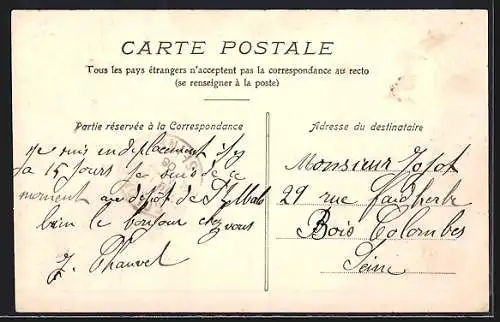 CARTE POSTALE
Tous les pays étrangers n'acceptent pas la correspondance au recto
(se renseigner à la poste)
Partie réservée à la Correspondance
Je suis en déplacement il y
a 15 jours je suis de ce
moment au dépôt de St Malo
bien le bonjour chez vous
J. Phauvel
Adresse du destinataire
Monsieur Jojot
29 rue faidherbe
Bois Colombes
Seine